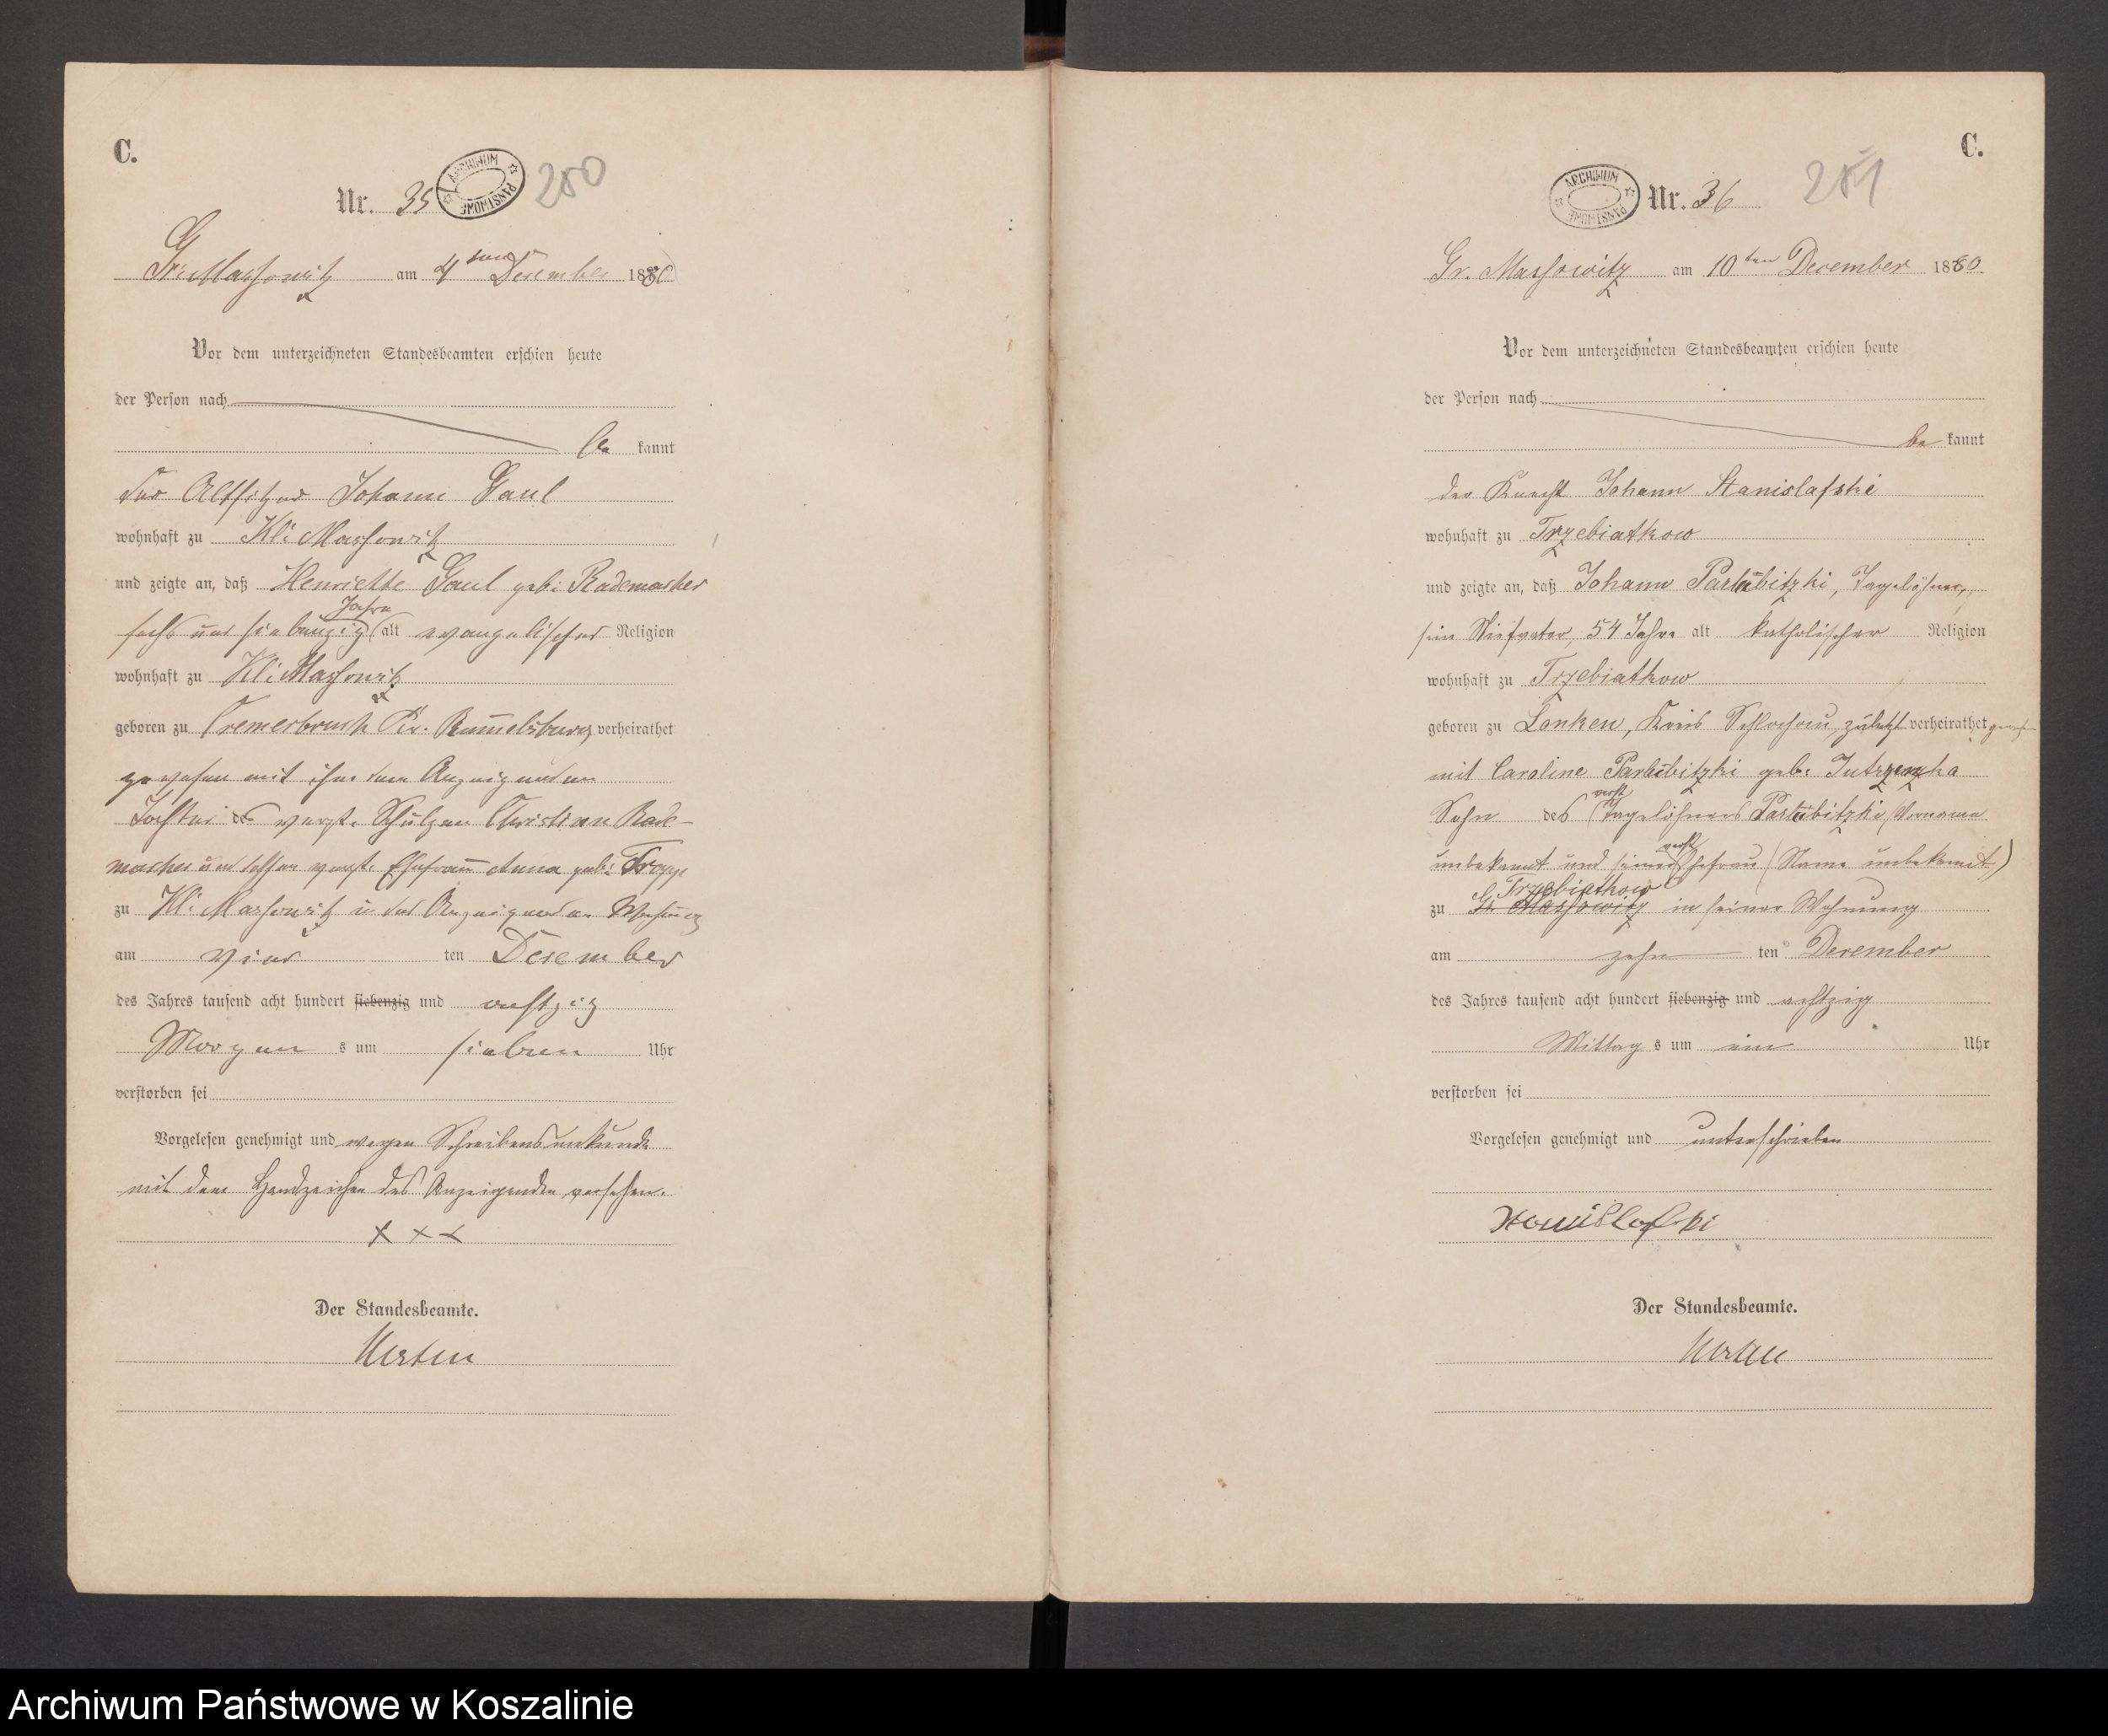 C.
Nr. 35
ARCHIWUM PAŃSTWOWE
250
Gr. Massowitz am 4ten December 1880
Vor dem unterzeichneten Standesbeamten erschien heute
der Person nach
be kannt
der Altsitzer Johann Gaul
wohnhaft zu Kl. Massowitz
und zeigte an, daß Henriette Gaul geb. Rademacher
sechs und siebenzig Jahre alt evangelischer Religion
wohnhaft zu Kl. Massowitz
geboren zu Cremerbruch Kr. Rummelsburg, verheirathet
gewesen mit ihm dem Anzeigenden
Tochter des verst. Schulzen Christian Rade-
macher und dessen verst. Ehefrau Anna geb.
zu Kl. Massowitz in des Anzeigenden Wohnung
am vier ten December
des Jahres tausend acht hundert siebenzig und achtzig
Morgen s um sieben Uhr
verstorben sei
Vorgelesen genehmigt und wegen Schreibensunkunde
mit dem Handzeichen des Anzeigenden versehen.
x x x
Der Standesbeamte.
C.
ARCHIWUM PAŃSTWOWE
Nr. 36
251
Gr. Massowitz am 10ten December 1880
Vor dem unterzeichneten Standesbeamten erschien heute
der Person nach
be kannt
der Knecht Johann Stanislafski
wohnhaft zu Trzebiatkow
und zeigte an, daß Johann Parlubitzki, Tagelöhner,
sein Stiefvater, 54 Jahre alt katholischer Religion
wohnhaft zu Trzebiatkow
geboren zu Lonken, Kreis Schlochau, zuletzt verheirathet gewes.
mit Caroline Parlubitzki geb. Jutrzenka
Sohn des verst. Tagelöhners Parlubitzki (Vorname
unbekannt und seiner verst. Ehefrau (Name unbekannt)
Trzebiatkow
zu Gr. Massowitz in seiner Wohnung
am zehn ten December
des Jahres tausend acht hundert siebenzig und achtzig
Mittag s um ein Uhr
verstorben sei
Vorgelesen genehmigt und unterschrieben
Stanislafski
Der Standesbeamte.
Archiwum Państwowe w Koszalinie